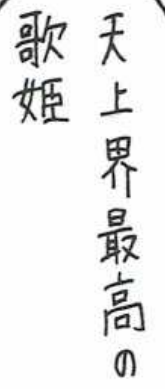 天上界最高の
歌姫